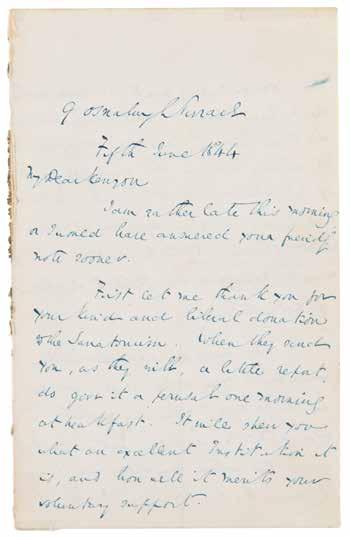 9 Osnaburgh Terrace
Fifth June 1844
My Dear Kenyon
I am rather late this morning
or I would have answered your friendly
note sooner.
First let me thank you for
your kind and liberal donation
to the Sanatorium. When they send
you, as they will, a little report,
do give it a perusal one morning
at breakfast. It will shew you
what an excellent Institution it
is, and how well it merits your
voluntary support.